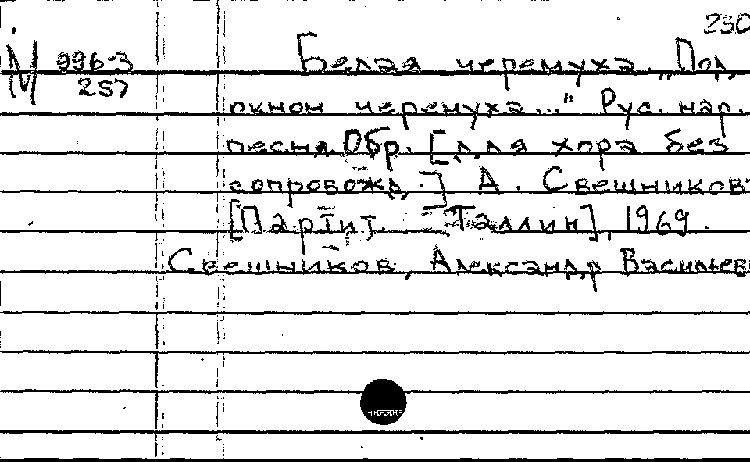 230
М 996-3
257
Белая черемуха. „Под
окном черемуха..." Рус. нар.
песня. Обр. [для хора без
сопровожд.] А. Свешников
[Партит. Таллин], 1969.
Свешников, Александр Василье